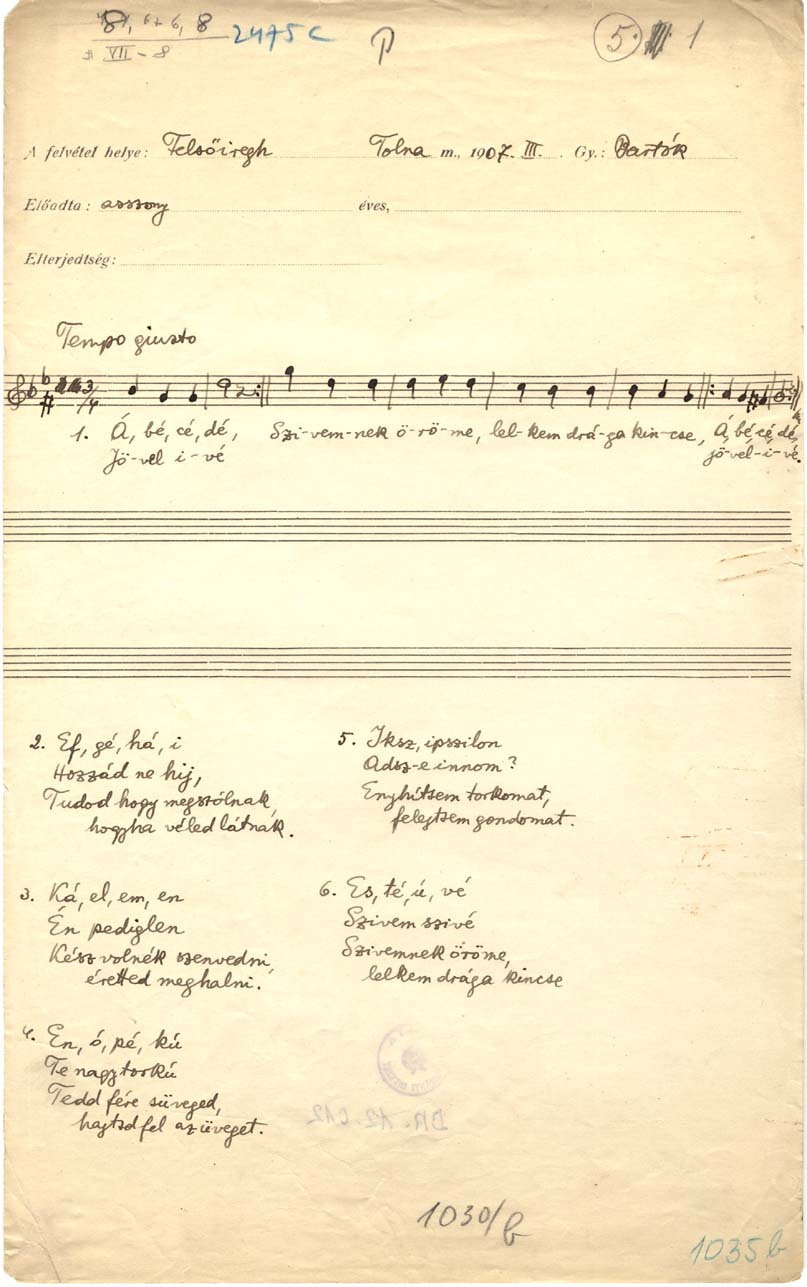 8, 6+6, 8
VII - 8
2475c
P
5. 1
A felvétel helye: Felsőiregh Tolna m., 1907. III. Gy.: Bartók
Előadta: asszony éves,
Elterjedtség:
Tempo giusto
3/4
1. Á, bé, cé, dé, Szi-vem-nek ö-rö-me, lel-kem drá-ga kin-cse, Á, bé, cé, dé,
Jö-vel i-vé jö-vel-i-vé.
2. Ef, gé, há, i
Hozzád ne hij,
Tudod hogy megszólnak,
hogyha véled látnák.
3. Ká, el, em, en
Én pediglen
Kész volnék szenvedni,
éretted meghalni.
4. En, ó, pé, kú
Te nagytorkú
Tedd fére süveged,
hajtsd fel az üveget.
5. Iksz, ipszilon
Adsz-e innom?
Enyhítsem torkomat,
felejtsem gondomat.
6. Es, té, ú, vé
Szivem szivé
Szivemnek öröme,
lelkem drága kincse
1030/b
1035b